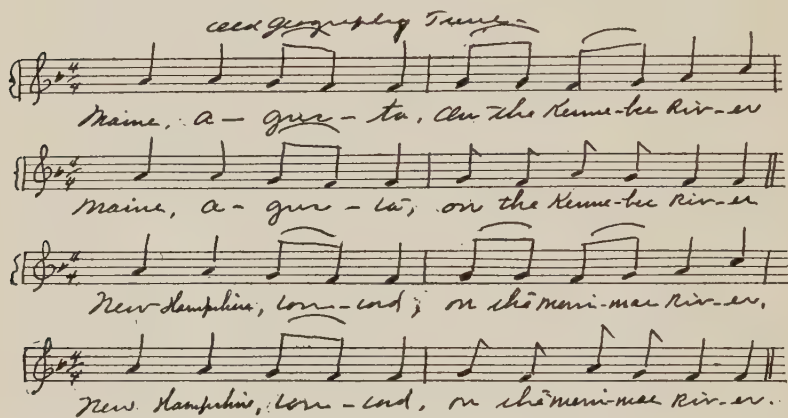 Old Geography Tune-
Maine, A- gus - ta, On the Kenne-bec Riv-er
Maine, a- gus - ta, on the Kenne-bec Riv-er
New Hampshire, Con-cord; on the Merri-mac Riv-er.
New Hampshire, Con-cord, on the Merri-mac Riv-er.